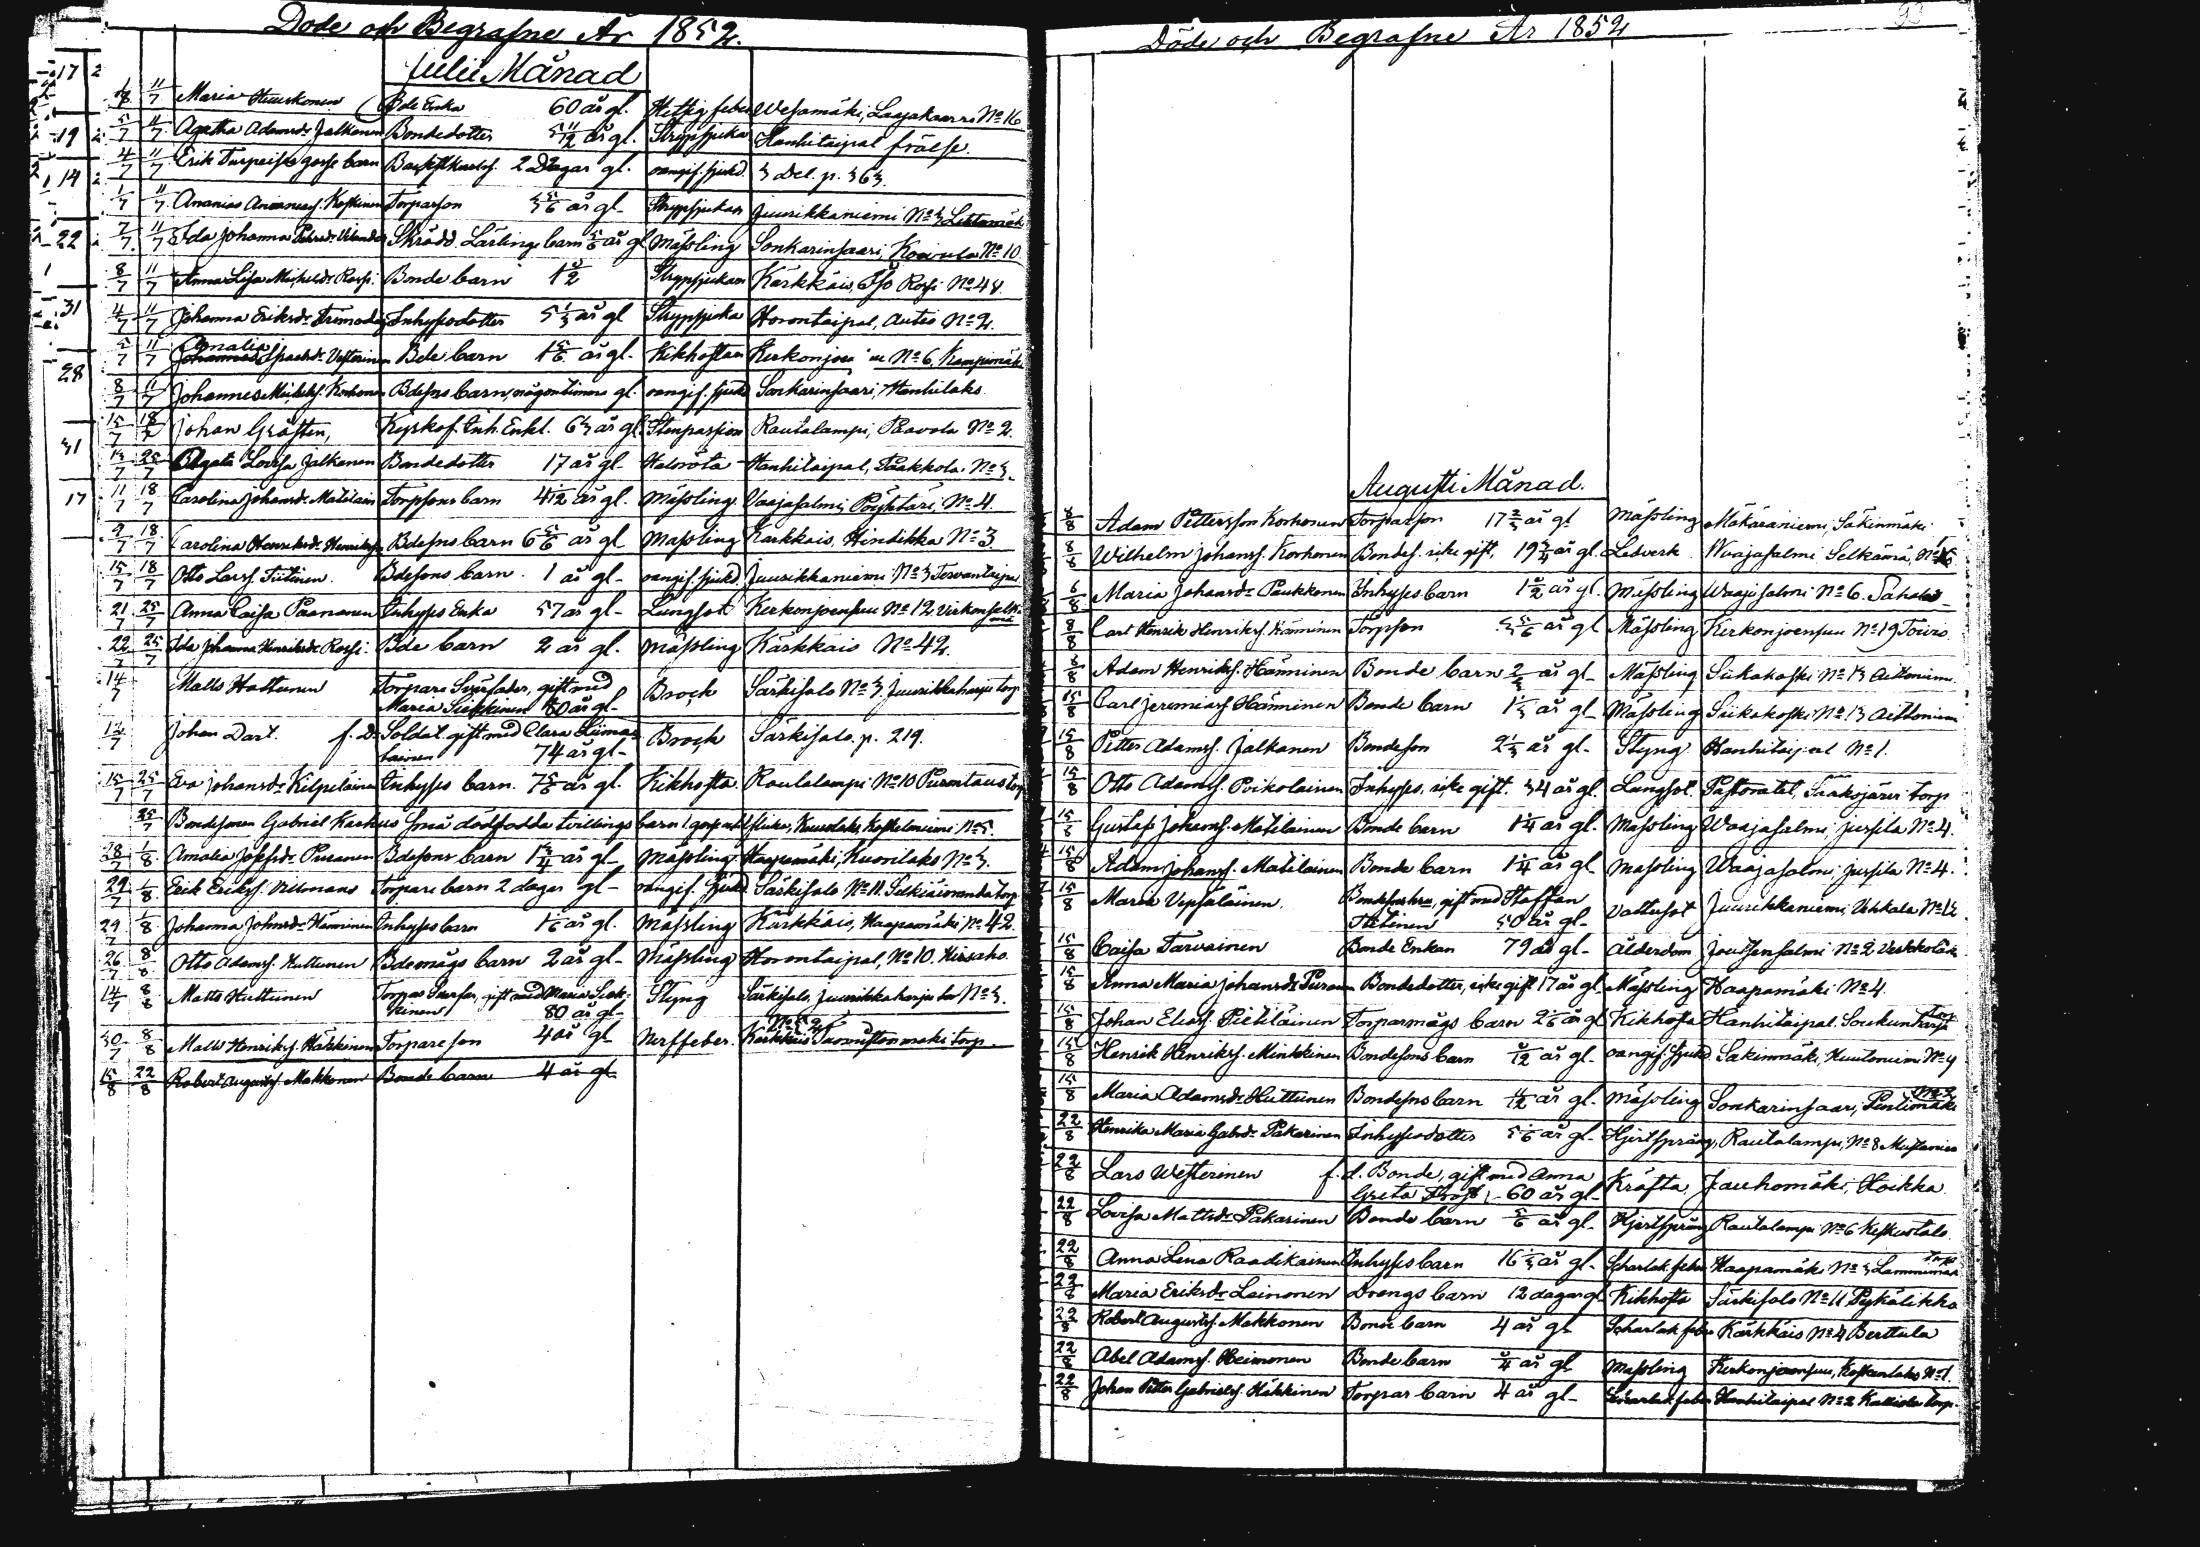 Döde och Begrafne År 1852.
Julii Månad
1/8 11/7 Maria Huuskonen Bde Enka 60 år gl. Hettig feber Wesamäki, Laajakaarre No 16
5/7 11/7 Agatha Adamsdr Jalkanen Bondedotter 5 11/12 år gl. Strypsjuka Hanhitaipal frälse.
4/7 11/7 Erik gosse barn 2 Dagar gl. oangif. sjukd. 3 Del. p. 363.
1/7 11/7 Ananias Ananiasf. Koskinen Torparson 3 5/6 år gl. Strypsjukan Juurikkaniemi No 3
7/7 11/7 Ida Johanna Skrädd. Lärlings barn 5/6 år gl Mässling Sonkarinsaari, Koivula No 10.
8/7 11/7 Anna Lisa Michelsdr Rossi. Bonde barn 1 1/2 Strypsjukan Kärkkäis, Iso Rossi No 48.
4/7 11/7 Johanna Eriksdr Inhysesdotter 5 1/3 år gl Strypsjuka Horontaipal, Autio No 2.
5/7 11/7 Amalia Vesterinen Bde barn 1 5/6 år gl. Kikhostan No 6.
8/7 11/7 Johannes Michelsf. Korhonen Bdesns barn, någon timma gl. oangif. sjukd Sonkarinsaari, Hanhilaks.
15/7 18/7 Johan Gråsten, Kyrkof. Inh. Enkl. 63 år gl. Stenpassion Rautalampi, Paavola No 2.
13/7 25/7 Agata Lovisa Jalkanen Bondedotter 17 år gl. Halsröta Hanhitaipal, Paakkola No 3.
11/7 18/7 Carolina Johansdr Matilain Torpsons barn 4 1/12 år gl. Mässling Vaajasalmi, Pöyhtäri, No 4.
9/7 18/7 Carolina Henriksdr Bdesns barn 6 5/6 år gl Mässling Kärkkäis, Hindikka No 3
15/7 18/7 Otto Larsf. Tiitinen. Bdesons barn. 1 år gl. oangif. sjukd. Juurikkaniemi No 3 Tervantaipal
21/7 25/7 Anna Caisa Paananen Inhyses Enka 57 år gl. Lungsot Kerkonjoensuu No 12
22/7 25/7 Ida Johanna Henriksdr Rossi. Bde barn 2 år gl. Mässling Kärkkäis No 42.
14/7 Matts Huttunen Torpare Svärfader, gift med Brock Särkisalo No 3. Juurikkaharju torp
Maria 80 år gl.
12/7 Johan Dart. f. d. Soldat. gift med Clara Liima- Brock Särkisalo. p. 219.
tainen 74 år gl.
15/7 25/7 Eva Johansdr Kilpeläinen Inhyses barn. 7 5/6 år gl. Kikhosta. Rautalampi No 10 Purontaus torp
25/7 Bondesonen Gabriel Karhus små dödfödda tvillings barn 1 gosse och 1 flicka, No 5.
28/7 1/8 Amalia Josefsdr Puranen Bdesons barn 1 3/4 år gl Mässling Haapamäki, Kuorilaks No 3.
29/7 1/8 Erik Eriksf. Torpare barn 2 dagar gl. oangif. sjukd. Särkisalo No 11. torp
29/7 1/8 Johanna Johansdr Hänninen Inhyses barn 1 1/6 år gl. Mässling Kärkkäis, Haapamäki No 42.
26/7 8/8 Otto Adamsf. Huttunen Bdemågs barn 2 år gl. Mässling Horontaipal, No 10. Hirsaho.
14/7 8/8 Matts Huttunen Torpas Svärfar, gift med Maria Siek- Styng Särkisalo, Juurikkaharju No 3.
kinen 80 år gl.
30/7 8/8 Matts Henriksf. Häkkinen Torpare son 4 år gl Nerffeber. Kärkkäis torp
15/8 22/8 Robert Augustsf. Makkonen Bonde barn 4 år gl
Döde och Begrafne År 1852
Augusti Månad.
8/8 Adam Pettersson Korhonen Torparson 17 2/3 år gl Mässling Mäkäräniemi, Säkinmäki
8/8 Wilhelm Johansf. Korhonen Bondes. icke gift, 19 3/4 år gl. Ledverk Waajasalmi Selkämä, No 6
6/8 Maria Johansdr Paukkonen Inhyses barn 1 1/2 år gl. Mässling Waajasalmi No 6.
8/8 Carl Henrik Henriksf. Hänninen Torpson 3 5/6 år gl Mässling Kerkonjoensuu No 19 Toivio
8/8 Adam Henriksf. Hänninen Bonde barn 2/3 år gl. Mässling Siikakoski No 13 Aittoniemi
15/8 Carl Jeremiasf Hänninen Bonde barn 1 1/3 år gl. Mässling Siikakoski No 13 Aittoniemi
15/8 Petter Adamsf. Jalkanen Bondeson 2 1/3 år gl. Styng Hanhitaipal No 1.
15/8 Otto Adamsf. Poikolainen Inhyses, icke gift. 34 år gl. Lungsot. Pastoratet, Sääksjärvi torp
15/8 Gustaf Johansf. Matilainen Bonde barn 1 1/4 år gl. Mässling Waajasalmi, Jussila No 4.
15/8 Adam Johansf. Matilainen Bonde barn 1 1/4 år gl Mässling Waajasalmi, Jussila No 4.
15/8 Maria Vepsäläinen. gift med Staffan Vattusot Juurikkaniemi, Uhkala No 12
Tiitinen 50 år gl.
15/8 Caisa Tarvainen Bonde Enkan 79 år gl. Ålderdom Joutsensalmi No 2
15/8 Anna Maria Johansdr Puranen Bondedotter, icke gift 17 år gl. Mässling Haapamäki No 4.
15/8 Johan Eliasf. Pietiläinen Torparmågs barn 2 1/6 år gl Kikhosta Hanhitaipal. Soukunharju torp
15/8 Henrik Henriksf. Minkkinen Bondesons barn 5/12 år gl. oangif. sjukd Säkinmäki, No 4
15/8 Maria Adamsdr Huttunen Bondesns barn 11/12 år gl. Mässling Sonkarinsaari, Pentinmäki No 3
22/8 Henrika Maria Gabrdr Pakarinen Inhysesdotter 5 1/6 år gl. Hjertspräng, Rautalampi, No 8 Mustaniemi
22/8 Lars Westerinen f. d. Bonde, gift med Anna Kräfta, Jauhomäki, Hoikka
Greta 60 år gl.
22/8 Lovisa Mattsdr Pakarinen Bonde barn 5/6 år gl. Hjertspräng Rautalampi No 6 Keskustalo
22/8 Anna Lena Raadikainen Inhyses barn 16 1/3 år gl. Scharlak. feber Haapamäki No 3 Lamminmäki torp
22/8 Maria Eriksdr Leinonen Drengs barn 12 dagar gl Kikhosta Särkisalo No 11 Pykälikkö
22/8 Robert Augustsf. Makkonen Bonde barn 4 år gl Scharlak. feber Kärkkäis No 4 Berttula
22/8 Abel Adamsf. Heimonen Bonde barn 3/4 år gl Mässling Kerkonjoensuu, Koskenlaks No 1.
22/8 Johan Petter Gabrielsf. Häkkinen Torpar barn 4 år gl. Scharlak. feber Hanhitaipal No 2 torp